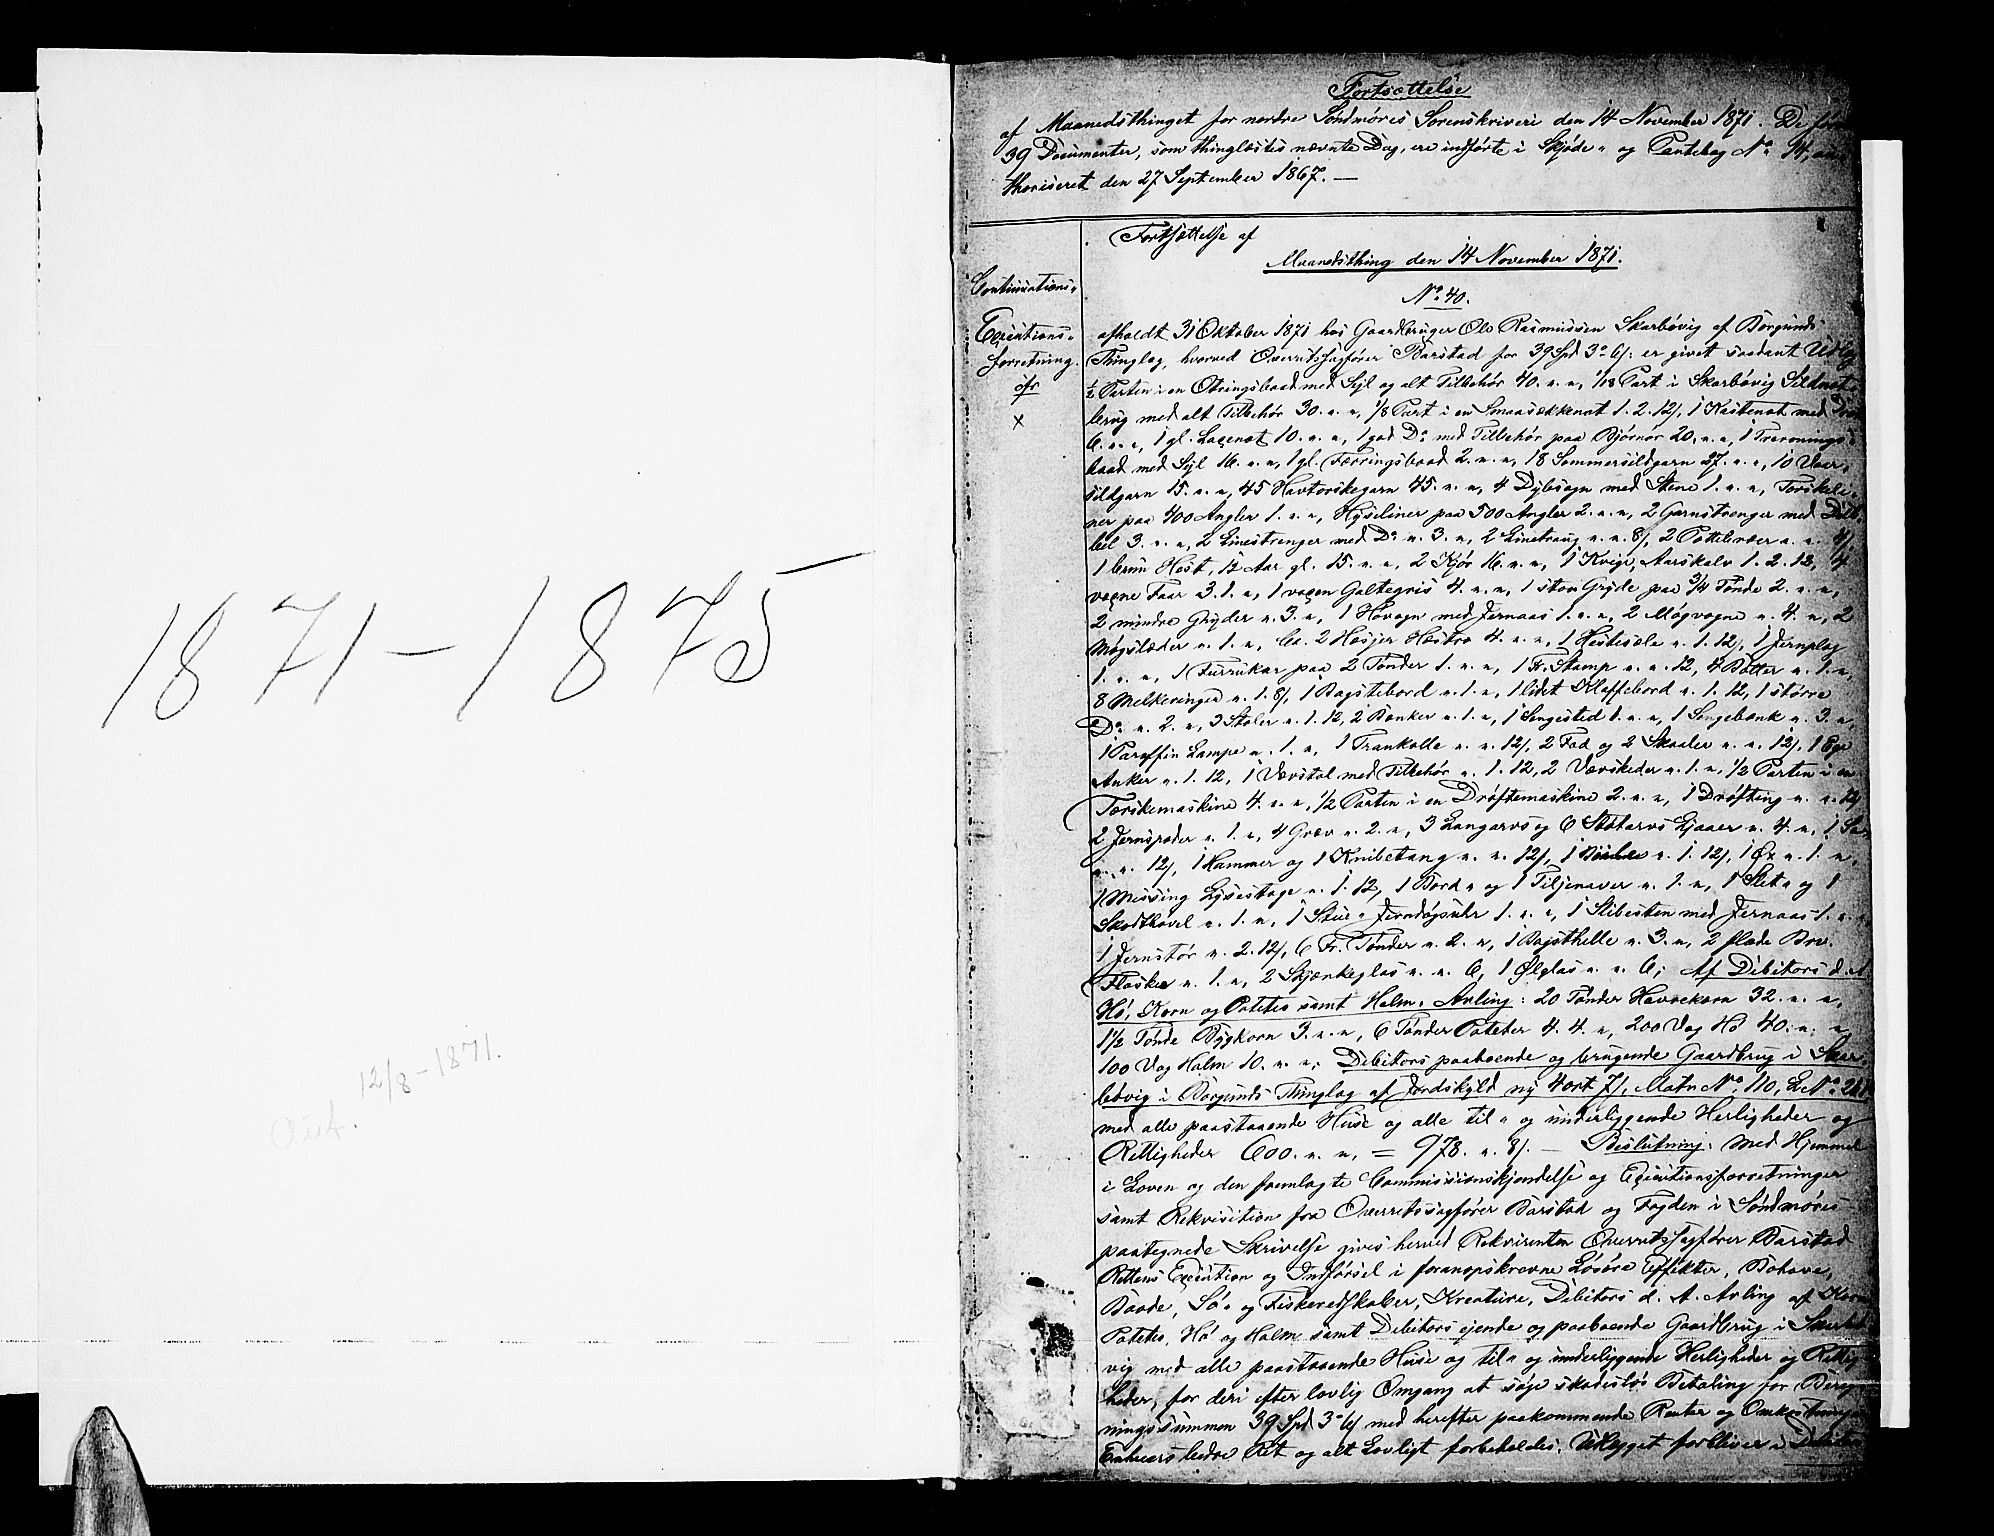 1871 – 1875
Aut. 12/8 – 1871.
Fortsættelse
af Maanedsthinget for nordre Søndmøres Sorenskriveri den 14 November 1871. De første
39 Documenter, som thinglæstes nævnte Dag, ere indførte i Skjøde- og Pantebog No 14, au-
thoriseret den 27 September 1867. —
Fortsættelse af
Maanedsthing den 14 November 1871.
Continuations-
Executions-
forretning
No 40.
afholdt 31 Oktober 1871 hos Gaardbruger Ole Rasmussen Skarbøvig af Borgunds
Thinglag, hvorved Overretssagfører Barstad for 39 Spd 3 " 6/: er givet saadant Udlæg
½ Parten i en Otringsbaad med Sejl og alt Tilbehør 40. " ", 1/18 Part i Skarbøvig Sildnot-
brug med alt Tilbehør 30. " ", 1/8 Part i en Smaasækkenot 1. 2. 12/, 1 Kastenot med
6. " ", 1 gl. Laxenot 10. " ", 1 god Do med Tilbehør paa Bjørnør 20. " ", 1 Treronings-
baad med Sejl 16. " ", 1 gl. Færringsbaad 2. " ", 18 Sommersildgarn 27. " ", 10 Vaar-
sildgarn 15. " ", 45 Havtorskegarn 45. " ", 4 Dybsagn med Stene 1. " ", Torskeli-
ner paa 400 Angler 1. " ", Hyseliner paa 500 Angler 2. " ", 2 Garnstrenger med
3. " ", 2 Linestrenger med Do " 3. ", 2 Linetraug " " 8/, 2 " " 4/
1 brun Hest, 12 Aar gl. 15. " ", 2 Kjør 16. " ", 1 Kvige, Aarskalv 1. 2. 12, 4
voxne Faar 3. 1. ", 1 voxen Galtegris 4. " ", 1 stor Gryde paa 3/4 Tønde 2. " ",
2 mindre Gryder " 3. ", 1 Høvogn med Jernaas 1. " ", 2 Møgvogne " 4. ", 2
Møgslæder " 1. ", Ca. 2 Hæsjer Hæstræ 4. " ", 1 Hestesæle " 1. 12/, 1 Jernplog
1. " ", 1 Furrukar paa 2 Tønder 1. " ", 1 Fr. Stamp " " 12, 4 Bøtter " 1. ",
8 Melkeringer " 1. 8/, 1 Bagstebord " 1. ", 1 lidet Klaffebord " 1. 12, 1 større
Do " 2. ", 3 Stoler " 1. 12, 2 Bænker " 1. ", 1 Sengested 1. " ", 1 Sengebænk " 3. ",
1 Paraffin Lampe " 1. ", 1 Trankolle " " 12/, 2 Fad og 2 Skaaler " " 12/, 1 Ege
Anker " 1. 12, 1 Vævstol med Tilbehør " 1. 12, 2 Vævskeder " 1. ", 1/2 Parten i en
Tærskemaskine 4. " ", 1/2 Parten i en Drøftemaskine 2. " ", 1 Drøfting " " 12/,
2 Jernspader " 1. ", 4 Græv " 2. ", 3 Langarvs og 6 Stutarvs Ljaaer " 4. ", 1 Sax
" " 12/, 1 Hammer og 1 Knibetang " " 12/, 1 " 1. 12/, 1 Øx " 1. ",
1 Messing Lysestage " 1. 12, 1 Bord- og 1 Tiljenaver " 1. ", 1 Slet- og 1
Skrubhøvel " 1. ", 1 Stue- Jerndøgsuhr 1. " ", 1 Slibesten med Jernaas 1. " ",
1 Jernstør " 2. 12/, 6 Fr. Tønder " 2. ", 1 Bagsthelle " 3. ", 2 flade Brv.
Flasker " 1. ", 2 Skjænkeglas " " 6, 1 Ølglas " " 6; Af Debitors d. A.
Hø, Korn og Potetes samt Halm- Avling: 20 Tønder Havrekorn 32. " ",
1½ Tønde Bygkorn 3. " ", 6 Tønder Poteter 4. 4. ", 200 Vog Hø 40. " ",
100 Vog Halm 10. " "; Debitors paaboende og brugende Gaardbrug i Skar-
bøvig i Borgunds Thinglag af Jordskyld ny 4 ort 7/, Matr No 110, L No
med alle paastaaende Huse og alle til- og underliggende Herligheder og
Rettigheder 600. " ", = 978. " 8/. — Beslutning: Med Hjemmel
i Loven og den fremlagte Commissionskjendelse og Executionsforretninger
samt Rekvisition fra Overretssagfører Barstad og Fogden i Søndmøres
paategnede Skrivelse gives herved Rekvirenten Overretssagfører Barstad
Rettens Execution og Indførsel i foranopskrevne Løsøre Effekter, Bohave,
Baade, Sø- og Fiskeredskaber, Kreature, Debitors d. A. Avling af Korn
Potetes, Hø og Halm samt Debitors ejende og paaboende Gaardbrug i Skarbø-
vig med alle paastaaende Huse og til- og underliggende Herligheder og Rettig-
heder, for deri efter lovlig Omgang at søge skadesløs Betaling for Bereg-
ningssummen 39 Spd 3 " 6/ med herefter paakommende Renter og Omkostninger
Enhvers bedre Ret og alt Lovligt forbeholdes. Udlægget forbliver i Debitors